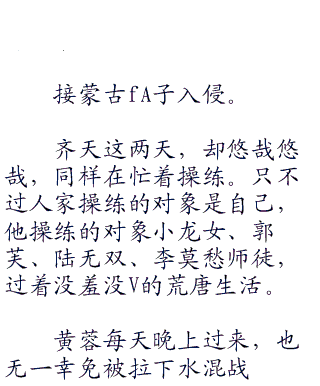 接蒙古fA子入侵。
齐天这两天，却悠哉悠
哉，同样在忙着操练。只不
过人家操练的对象是自己，
他操练的对象小龙女、郭
芙、陆无双、李莫愁师徒，
过着没羞没V的荒唐生活。
黄蓉每天晚上过来，也
无一幸免被拉下水混战